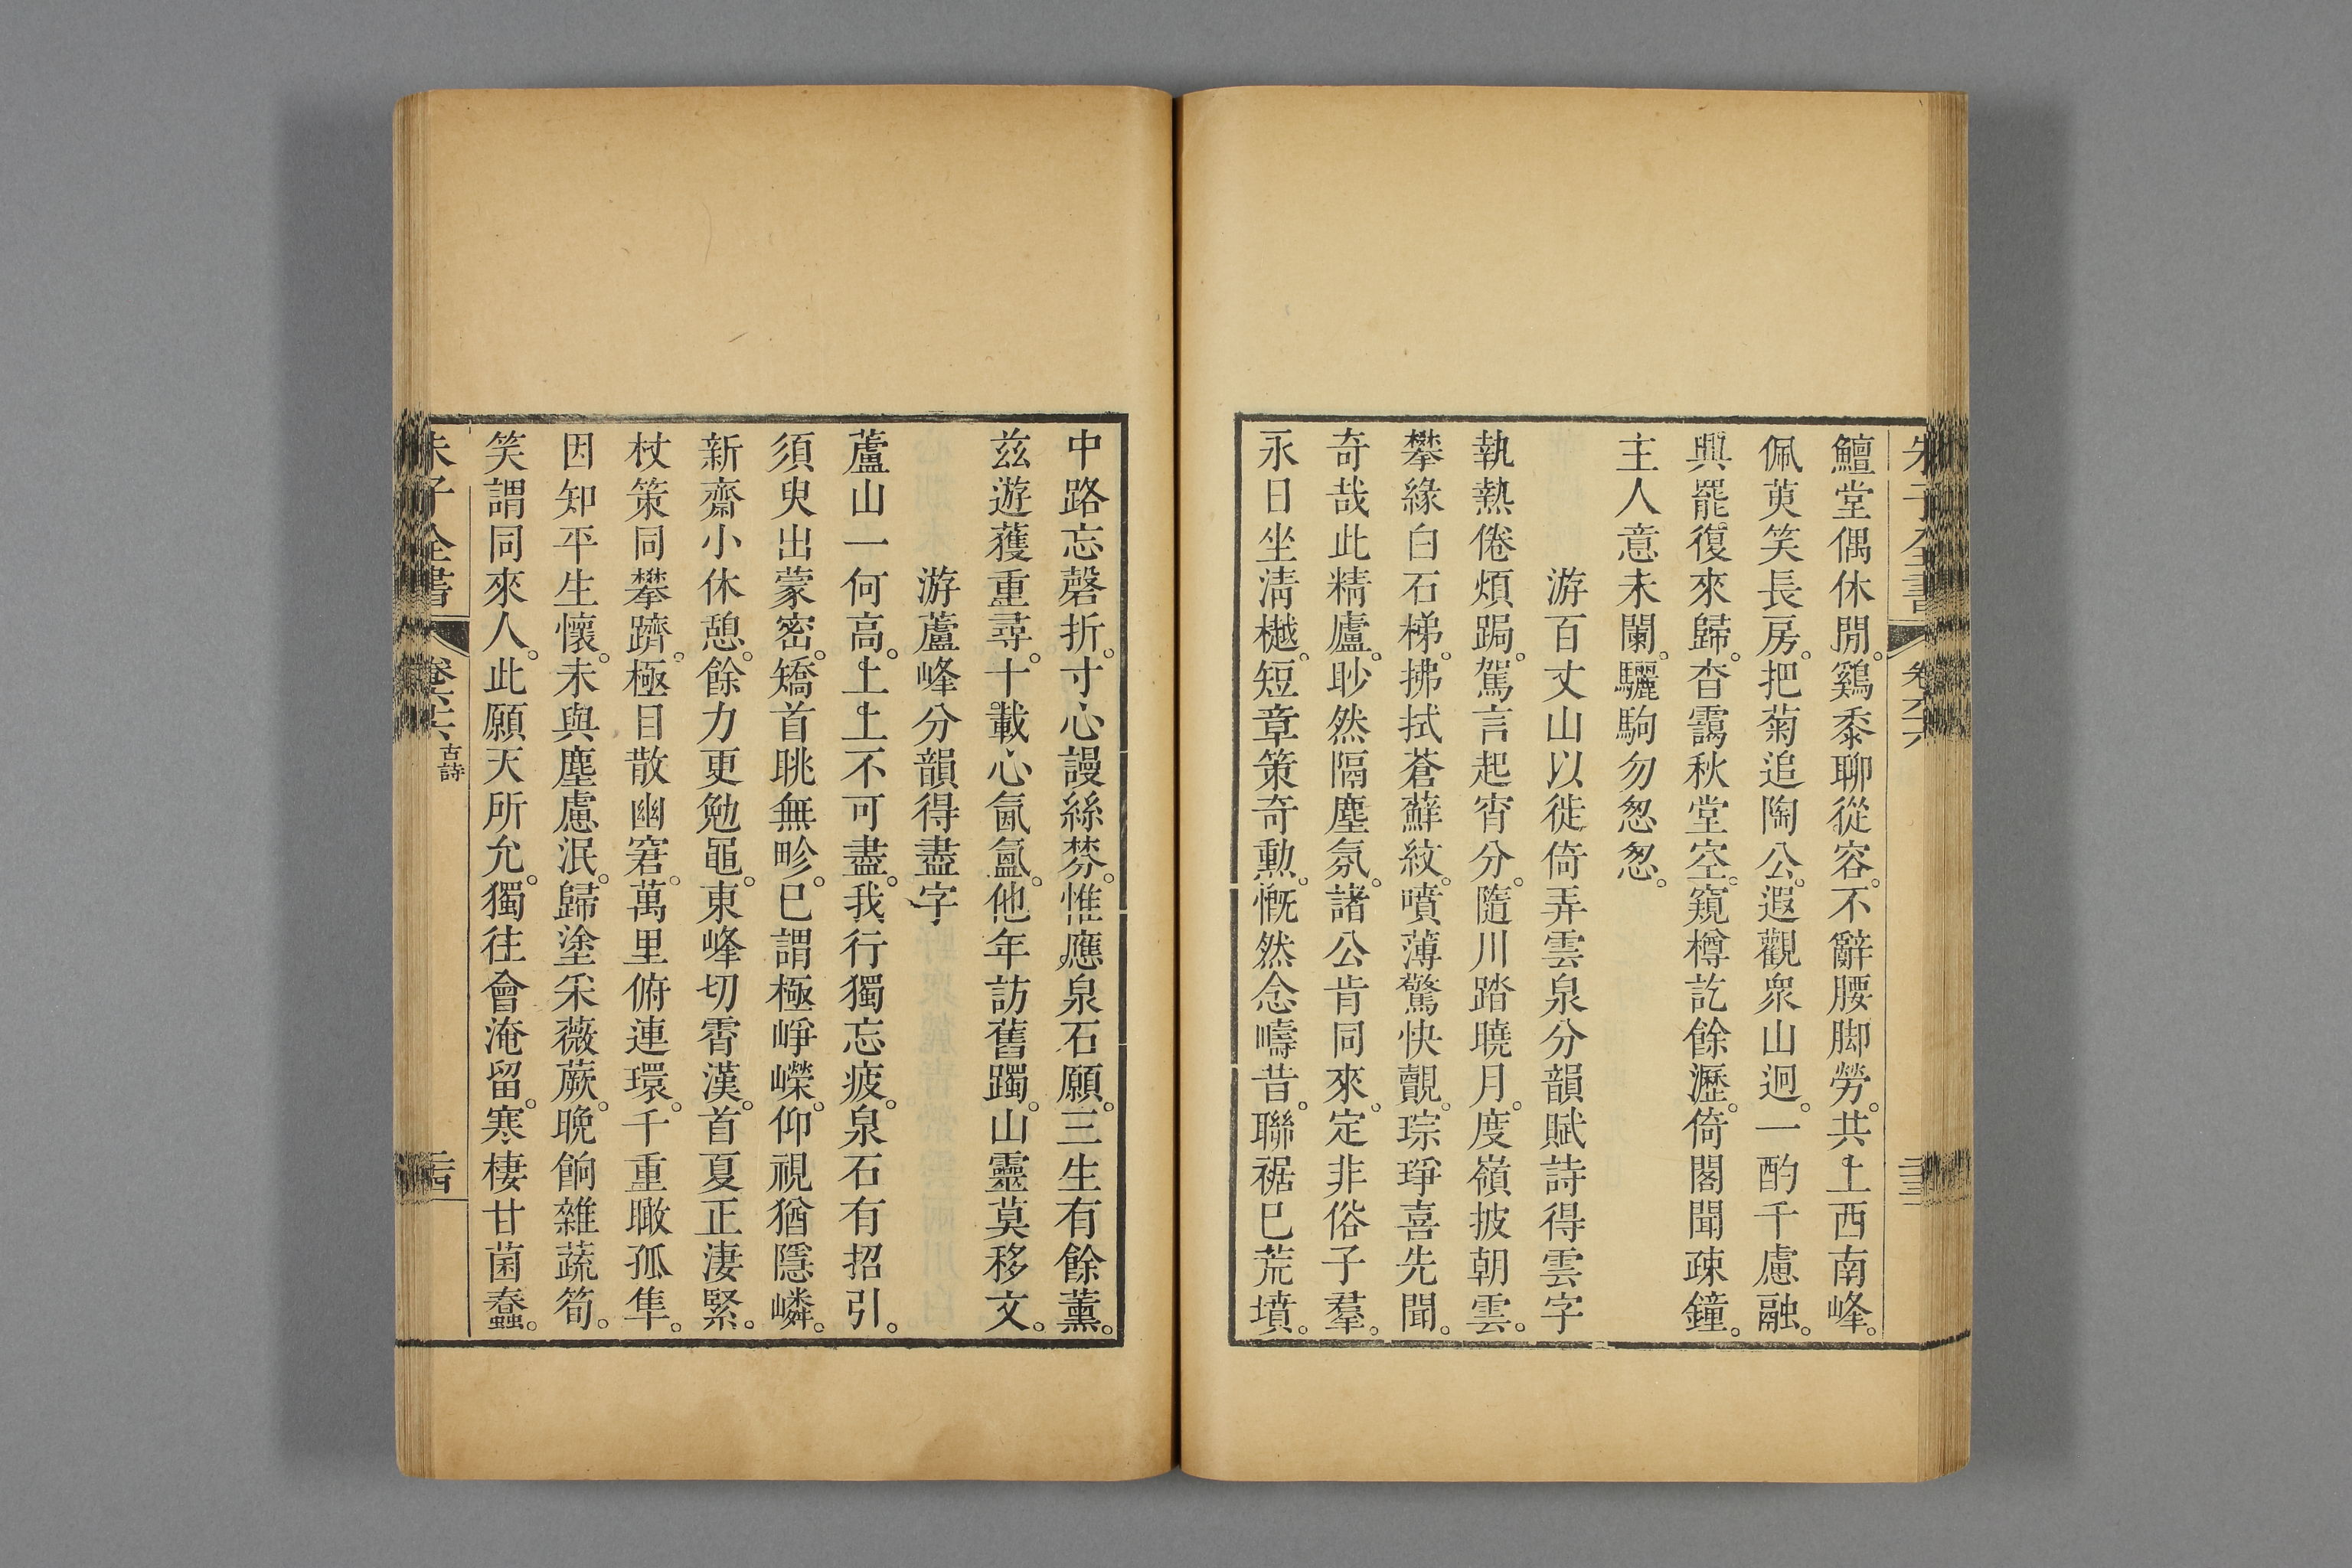 朱子全書 卷六十六 二三
鱣堂偶休閒。鷄黍聊從容。不辭腰脚勞。共上西南峰。
佩萸笑長房。把菊追陶公。遐觀衆山迥。一酌千慮融。
興罷復來歸。杳靄秋堂空。窺樽訖餘瀝。倚閣聞疎鐘。
主人意未闌。驪駒勿怱怱。
游百丈山以徙倚弄雲泉分韻賦詩得雲字
執熱倦煩跼。駕言起宵分。隨川踏曉月。度嶺披朝雲。
攀緣白石梯。拂拭蒼蘚紋。噴薄驚快覩。琮琤喜先聞。
奇哉此精廬。眇然隔塵氛。諸公肯同來。定非俗子羣。
永日坐淸樾。短章策奇勳。慨然念疇昔。聯裾已荒墳。
中路忘磬折。寸心謾絲棼。惟應泉石願。三生有餘薰。
兹遊獲重尋。十載心氤氳。他年訪舊躅。山靈莫移文。
游蘆峰分韻得盡字
蘆山一何高。上上不可盡。我行獨忘疲。泉石有招引。
須臾出蒙密。矯首眺無畛。已謂極崢嶸。仰視猶隱嶙。
新齋小休憩。餘力更勉黽。東峰切霄漢。首夏正淒緊。
杖策同攀躋。極目散幽窘。萬里俯連環。千重瞰孤隼。
因知平生懷。未與塵慮泯。歸塗采薇蕨。晚餉雜蔬筍。
笑謂同來人。此願天所允。獨往會淹留。寒棲甘菌蠢。
朱子全書 卷六十六 古詩 二四